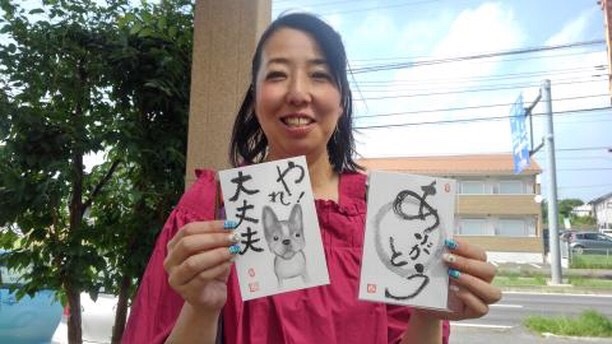 やれ!
大丈夫
ありがとう